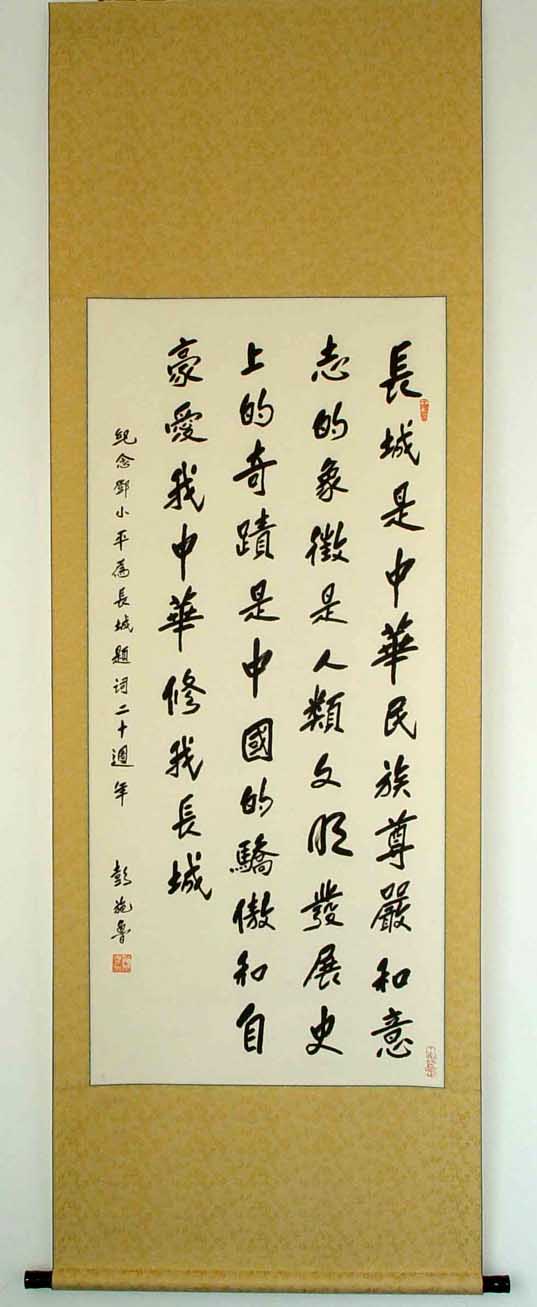 長城是中華民族尊嚴和意
志的象徵是人類文明發展史
上的奇蹟是中國的驕傲和自
豪愛我中華修我長城
紀念鄧小平為長城題词二十週年
彭施魯